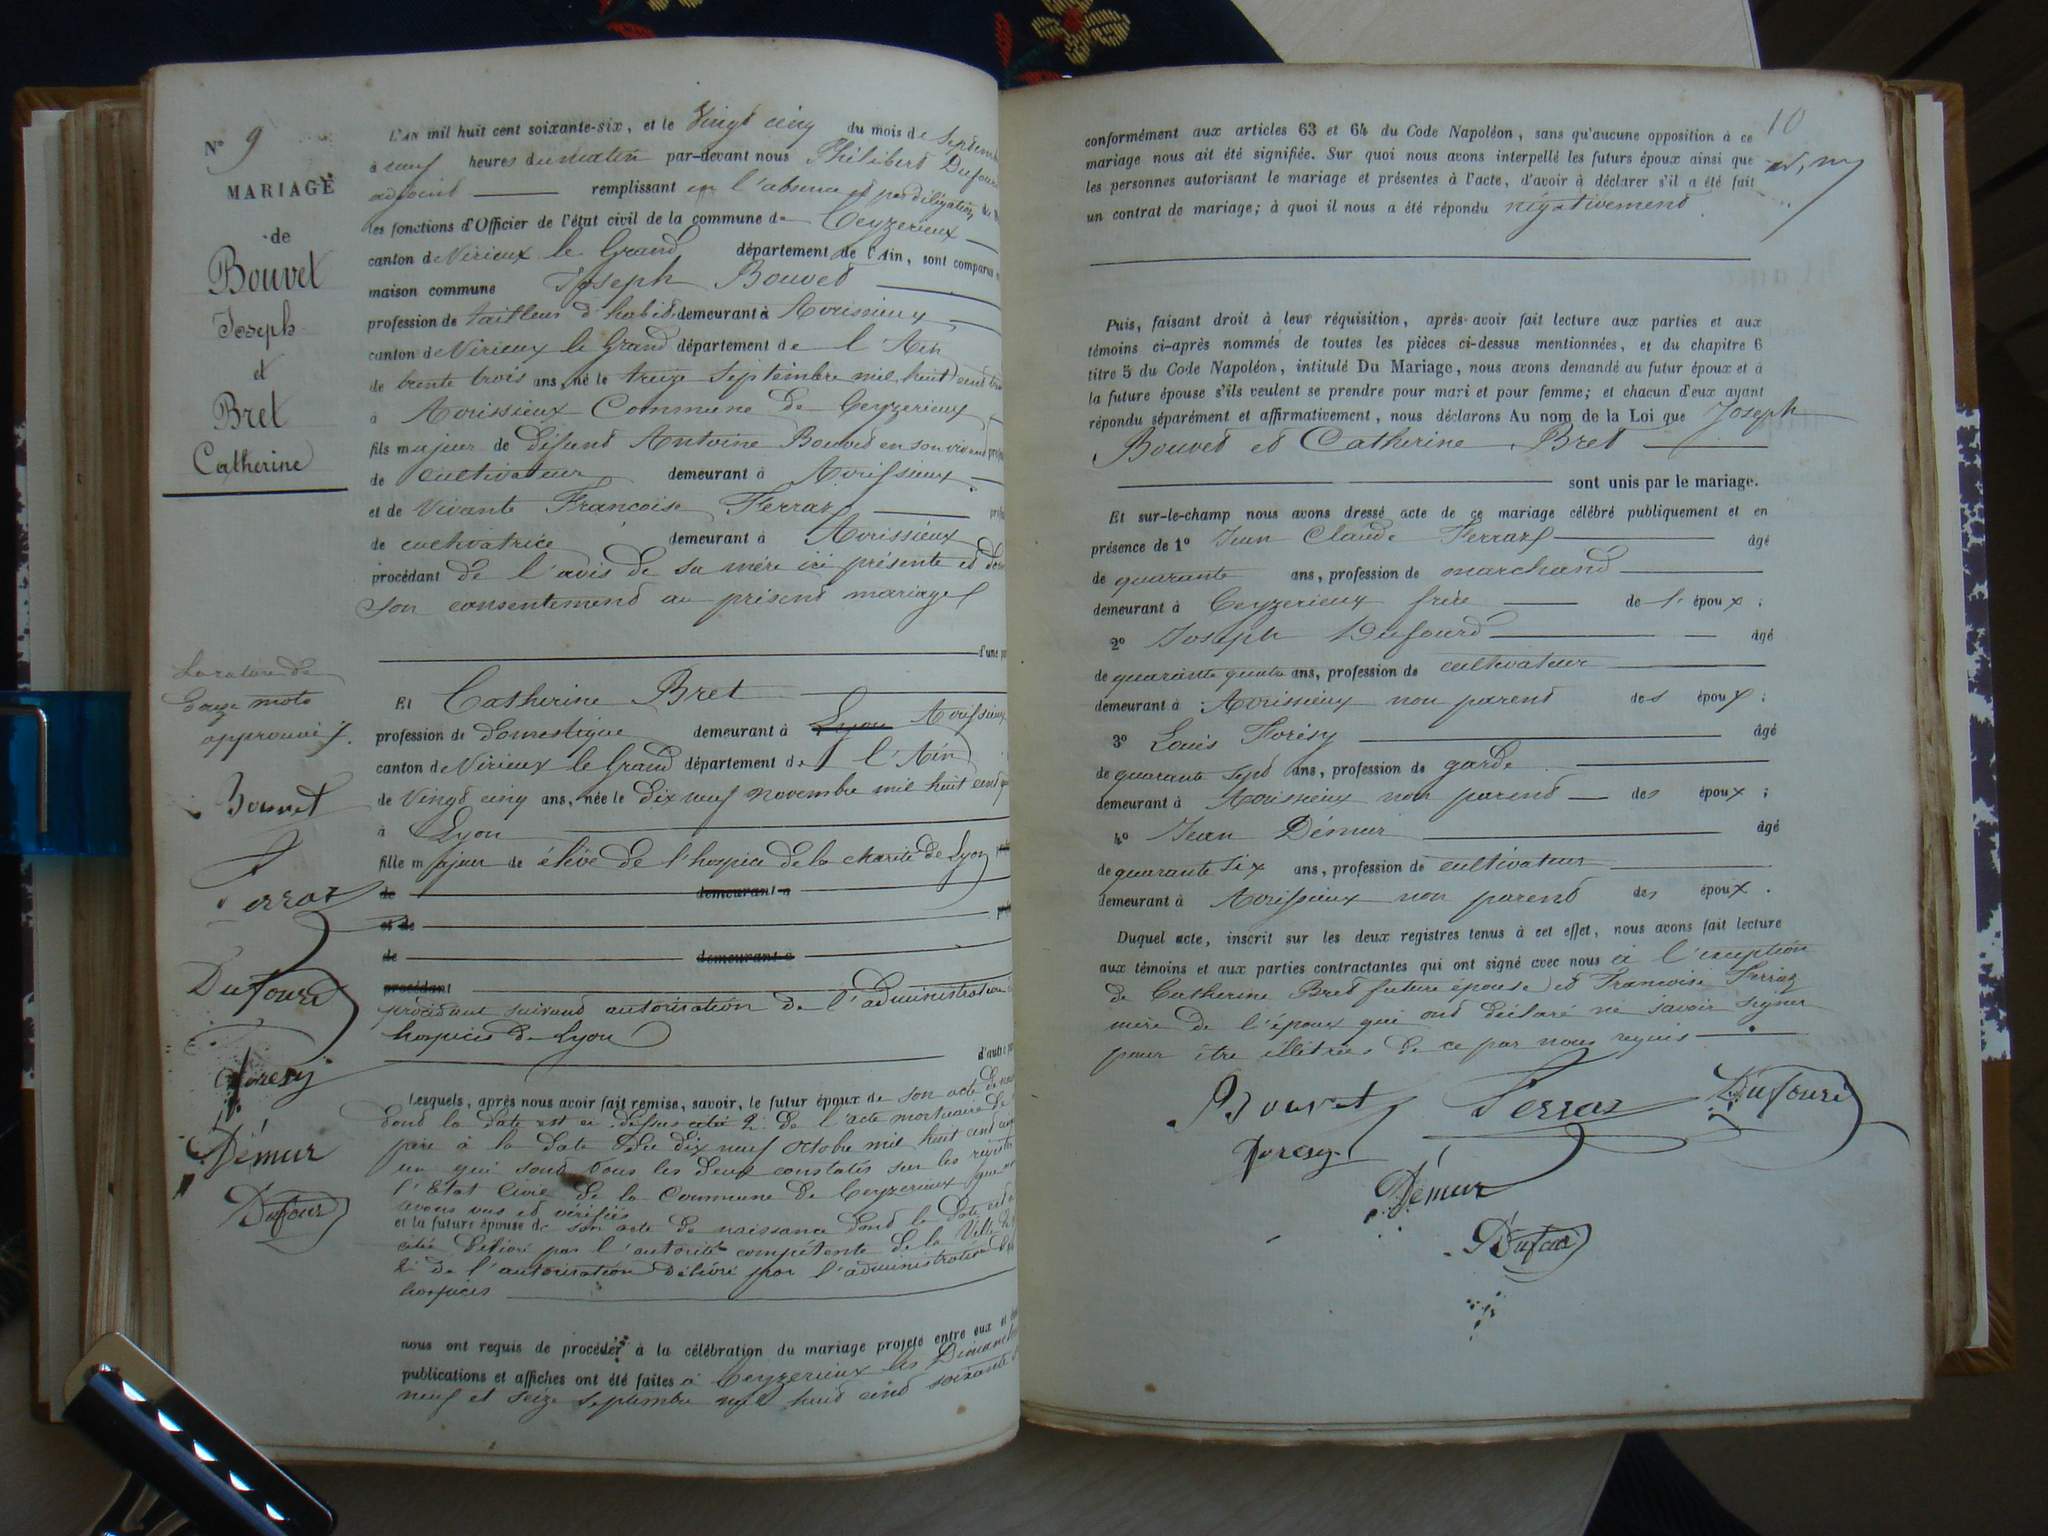 N° 9
MARIAGE
de
Bouvet
Joseph
et
Bret
Catherine
L'AN mil huit cent soixante-six, et le Vingt cinq du mois de Septemb
à neuf heures du matin par-devant nous Philibert Dufour
adjoint remplissant en l'absence et par délégation du
les fonctions d'Officier de l'état civil de la commune de Ceyzerieux
canton de Virieux le Grand département de l'Ain, sont comparus
maison commune Joseph Bouvet
profession de tailleur d'habits demeurant à Avrissieux
canton de Virieux le Grand département de l'Ain
de trente trois ans, né le treize Septembre mil huit cent
à Avrissieux Commune de Ceyzerieux
fils majeur de défunt Antoine Bouvet en son vivant
de cultivateur demeurant à Avrissieux
et de Vivante Francoise Ferraz
de cultivatrice demeurant à Avrissieux
procédant de l'avis de sa mère ici présente et
son consentement au présent mariage
d'une
Et Catherine Bret
profession de domestique demeurant à Lyon Avrissieux
canton de Virieux le Grand département de l'Ain
de Vingt cinq ans, née le dix neuf novembre mil huit cent
à Lyon
fille majeur de élève de l'hospice de la charité de Lyon
de demeurant à
et de
de demeurant à
procédant
procédant suivant autorisation de l'administration
hospices de Lyon
d'autre
Lesquels, après nous avoir fait remise, savoir, le futur époux de son acte de
dont la date est ci dessus citée 2° de l'acte mortuaire de
père à la date du dix neuf octobre mil huit cent
un qui sont tous les deux constatés sur les
l'Etat Civil de la Commune de Ceyzerieux que
avons vus et vérifiés
et la future épouse de son acte de naissance dont la date est
citée délivré par l'autorité compétente de la Ville
2° de l'autorisation délivré par l'administration
hospices
nous ont requis de procéder à la célébration du mariage projeté entre eux et
publications et affiches ont été faites à Ceyzerieux les Dimanches
neuf et seize Septembre mil huit cent soixante
La rature de
douze mots
approuvé
Bouvet
Ferraz
Dufourd
Foresy
Démur
Dufour
10
conformément aux articles 63 et 64 du Code Napoléon, sans qu'aucune opposition à ce
mariage nous ait été signifiée. Sur quoi nous avons interpellé les futurs époux ainsi que
les personnes autorisant le mariage et présentes à l'acte, d'avoir à déclarer s'il a été fait
un contrat de mariage; à quoi il nous a été répondu négativement
Puis, faisant droit à leur réquisition, après avoir fait lecture aux parties et aux
témoins ci-après nommés de toutes les pièces ci-dessus mentionnées, et du chapitre 6
titre 5 du Code Napoléon, intitulé Du Mariage, nous avons demandé au futur époux et à
la future épouse s'ils veulent se prendre pour mari et pour femme; et chacun d'eux ayant
répondu séparément et affirmativement, nous déclarons Au nom de la Loi que Joseph
Bouvet et Catherine Bret
sont unis par le mariage.
Et sur-le-champ nous avons dressé acte de ce mariage célébré publiquement et en
présence de 1° Jean Claude Ferraz âgé
de quarante ans, profession de marchand
demeurant à Ceyzerieux frère de l' époux;
2° Joseph Dufourd âgé
de quarante quatre ans, profession de cultivateur
demeurant à Avrissieux non parent des époux;
3° Louis Forésy âgé
de quarante sept ans, profession de garde
demeurant à Avrissieux non parent des époux;
4° Jean Démur âgé
de quarante six ans, profession de cultivateur
demeurant à Avrissieux non parent des époux.
Duquel acte, inscrit sur les deux registres tenus à cet effet, nous avons fait lecture
aux témoins et aux parties contractantes qui ont signé avec nous à l'exception
de Catherine Bret future épouse et Francoise Ferraz
mère de l'époux qui ont déclaré ne savoir signer
pour être illétrées de ce par nous requis
Bouvet Ferraz Dufourd
Foresy
Démur
Dufour